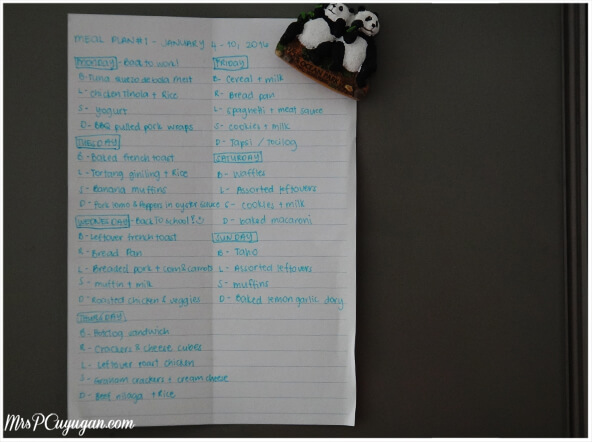 MEAL PLAN #1 - JANUARY 4-10, 2016
MONDAY - Back to work!
B- Tuna queso de bola melt
L- Chicken Tinola + Rice
S- Yogurt
D- BBQ pulled pork wraps
TUESDAY
B- Baked french toast
L- Tortang giniling + Rice
S- Banana muffins
D- Pork lomo & Peppers in oyster sauce
WEDNESDAY - Back to school!
B- Leftover french toast
R- Bread Pan
L- Breaded pork + corn & carrots
S- muffin + milk
D- Roasted chicken & veggies
THURSDAY
B- Hotdog sandwich
R- Crackers & cheese cubes
L- Leftover roast chicken
S- Graham crackers + cream cheese
D- Beef nilaga + Rice
FRIDAY
B- Cereal + milk
R- Bread pan
L- spaghetti + meat sauce
S- cookies + milk
D- Tapsi / Tocilog
SATURDAY
B- Waffles
L- Assorted leftovers
S- cookies + milk
D- baked macaroni
SUNDAY
B- Taho
L- Assorted leftovers
S- muffins
D- Baked lemon garlic dory
OCEAN PARK
MrsPCuyugan.com